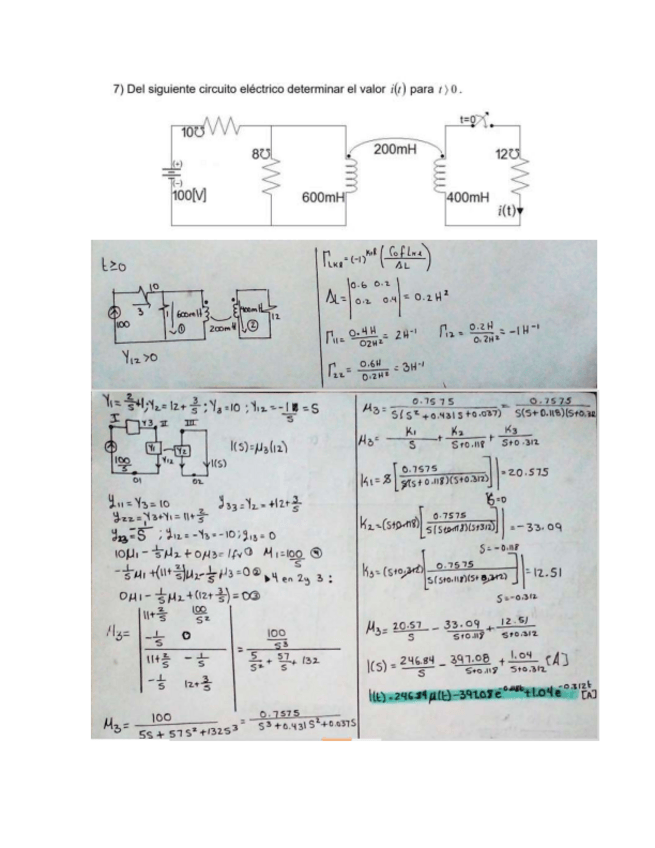 7) Del siguiente circuito eléctrico determinar el valor i(t) para t⟩0.
t=0
10℧
8℧
200mH
12℧
(+)
(-)
100[V]
600mH
400mH
i(t)
t≥0
10
3
100
1
600mH
①
200mH
400mH
②
12
Y12>0
ΔL = |0.6 0.2
0.2 0.4| = 0.2H²
Γ11 = 0.4H/02H² = 2H⁻¹ Γ12 = 0.2H/0.2H² = -1H⁻¹
Γ22 = 0.6H/0.2H² = 3H⁻¹
Y2 = 12+3/S ; Y3=10 ;
I Y3 II III
Y1
Y2
Y12
100/S
I(S)
01 02
I(S)=μ3(12)
y11 = Y3 = 10 y33 = Y2 = +12+3/S
y22 = Y3+Y1 = 11+2/S
; y12 = -Y3 = -10 ; y13 = 0
10μ1 - 1/S μ2 + 0μ3 = Ifv① μ1 = 100/S ④
-1/S μ1 + (11+2/S)μ2 - 1/S μ3 = 0② ④ en 2 y 3 :
0μ1 - 1/S μ2 + (12+3/S) = 0③
μ3 = |11+2/S 100/S²
-1/S 0|
/ |11+2/S -1/S
-1/S 12+3/S|
= (100/S³) / (5/S² + 57/S + 132)
μ3 = 100 / (5S + 57S² + 132S³) = 0.7575 / (S³+0.431S²+0.0375
μ3 = 0.7575 / S(S²+0.431S+0.037) = 0.7575 / S(S+0.118)(S+0.312
μ3 = K1/S + K2/S+0.118 + K3/S+0.312
K1 = S[0.7575 / S(S+0.118)(S+0.312)]| = 20.575
S=0
K2 = (S+0.118)[0.7575 / S(S+0.118)(S+0.312)]| = -33.09
S=-0.118
K3 = (S+0.312)[0.7575 / S(S+0.118)(S+0.312)]| = 12.51
S=-0.312
μ3 = 20.57/S - 33.09/S+0.118 + 12.51/S+0.312
I(S) = 246.84/S - 397.08/S+0.118 + 1.04/S+0.312 [A]
I(t) = 246.84μ(t) - 397.08e^-0.118t + 1.04e^-0.312t [A]